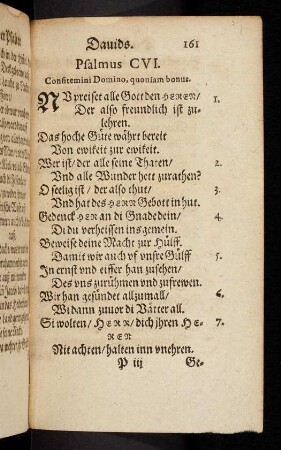 Dauids. 161
Psalmus CVI.
Confitemini Domino, quoniam bonus.
NVpreiset alle Gott den HEREN/ 1.
Der also freundlich ist zu-
lehren.
Das hoche Güte währt bereit
Von ewikeit zur ewikeit.
Wer ist/ der alle seine Thaten/ 2.
Vnd alle Wunder hett zurathen?
O seelig ist/ der also thut/ 3.
Vnd hat des HERN Gebott in hut.
Gedenck HER an di Gnadedein/ 4.
Di du verheissen ins gemein.
Beweise deine Macht zur Hülff.
Damit wir auch vf vnsre Gülff 5.
In ernst vnd eiffer han zusehen/
Des vns zurühmen vnd zufrewen.
Wir han gesündet allzumall/ 6.
Wi dann zuuor di Vätter all.
Si wolten/ HERR/ dich jhren HE- 7.
REN
Nit achten/ halten inn vnehren.
P iij Ge-